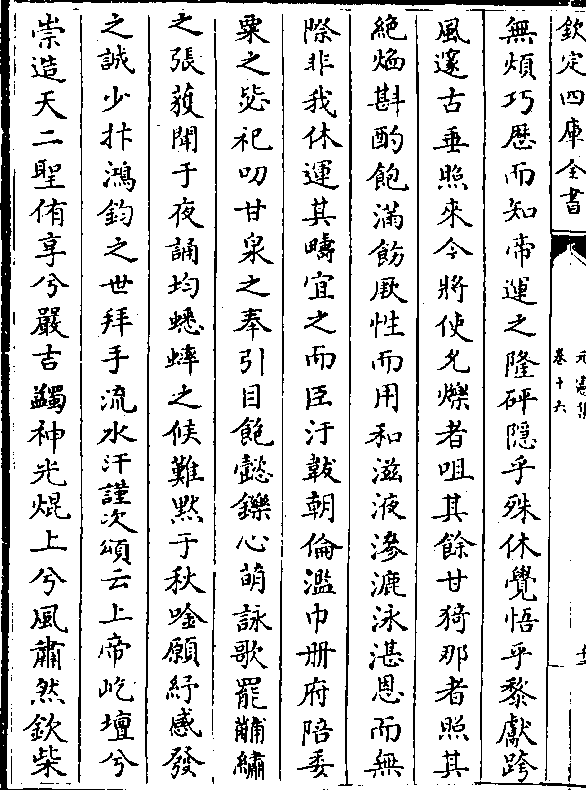 欽定四庫全書
元憲集
卷十六
無煩巧歴而知帝運之隆砰隠乎殊休覺悟乎黎獻跨
風邃古垂照來今將使允爍者咀其餘甘猗那者照其
絶焔斟酌飽滿飭厥性而用和滋液滲漉泳湛恩而無
際非我休運其疇宜之而臣汙韍朝倫濫巾册府陪委
粟之毖祀叨甘泉之奉引目飽懿鑠心萌詠歌罷黼繡
之張蔉聞于夜誦均蟋蟀之候難黙于秋唫願紓感發
之誠少抃鴻鈞之世拜手流水汗謹次頌云上帝屹壇兮
崇造天二聖侑享兮嚴吉蠲神光焜上兮風肅然欽柴